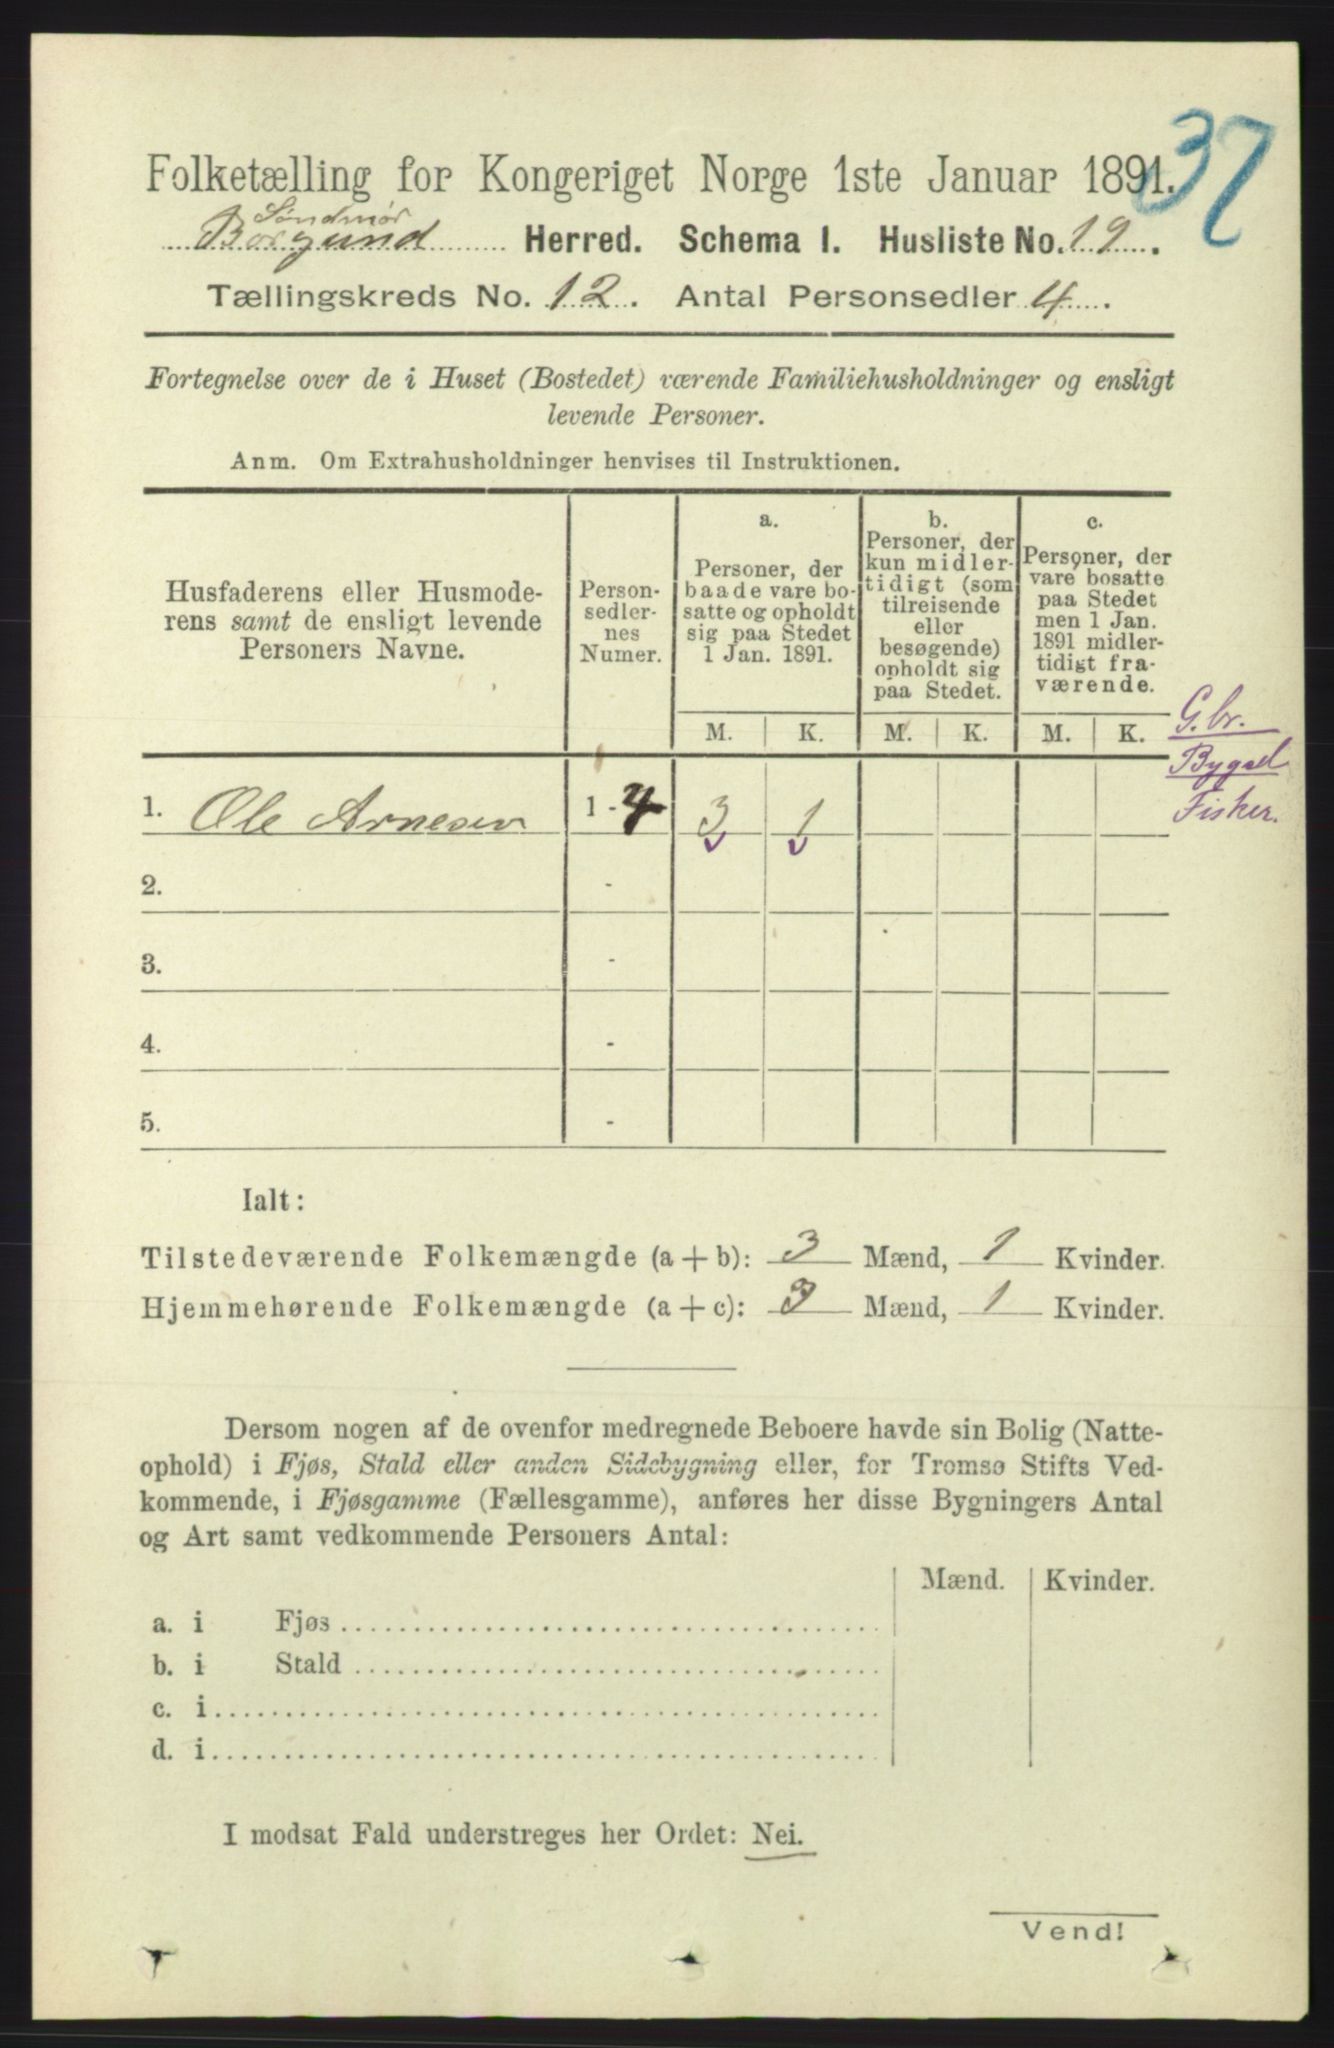 37
Folketælling for Kongeriget Norge 1ste Januar 1891.
Søndmør
Borgund Herred. Schema 1. Husliste No. 19.
Tællingskreds No. 12. Antal Personsedler 4.
Fortegnelse over de i Huset (Bostedet) værende Familiehusholdninger og ensligt
levende Personer.
Anm. Om Extrahusholdninger henvises til Instruktionen.
Husfaderens eller Husmode-
rens samt de ensligt levende
Personers Navne.
Person-
sedler-
nes
Numer.
a.
Personer, der
baade vare bo-
satte og opholdt
sig paa Stedet
1 Jan. 1891.
b.
Personer, der
kun midler-
tidigt (som
tilreisende
eller
besøgende)
opholdt sig
paa Stedet.
c.
Personer, der
vare bosatte
paa Stedet
men 1 Jan.
1891 midler-
tidigt fra-
værende.
M. K. M. K. M. K.
G.br.
Bygsel
Fisker.
1. Ole Arnesen 1 - 4 3 1
2. -
3. -
4. -
5. -
Ialt:
Tilstedeværende Folkemængde (a + b): 3 Mænd, 1 Kvinder.
Hjemmehørende Folkemængde (a + c): 3 Mænd, 1 Kvinder.
Dersom nogen af de ovenfor medregnede Beboere havde sin Bolig (Natte-
ophold) i Fjøs, Stald eller anden Sidebygning eller, for Tromsø Stifts Ved-
kommende, i Fjøsgamme (Fællesgamme), anføres her disse Bygningers Antal
og Art samt vedkommende Personers Antal:
Mænd. Kvinder.
a. i Fjøs
b. i Stald
c. i
d. i
I modsat Fald understreges her Ordet: Nei.
Vend!